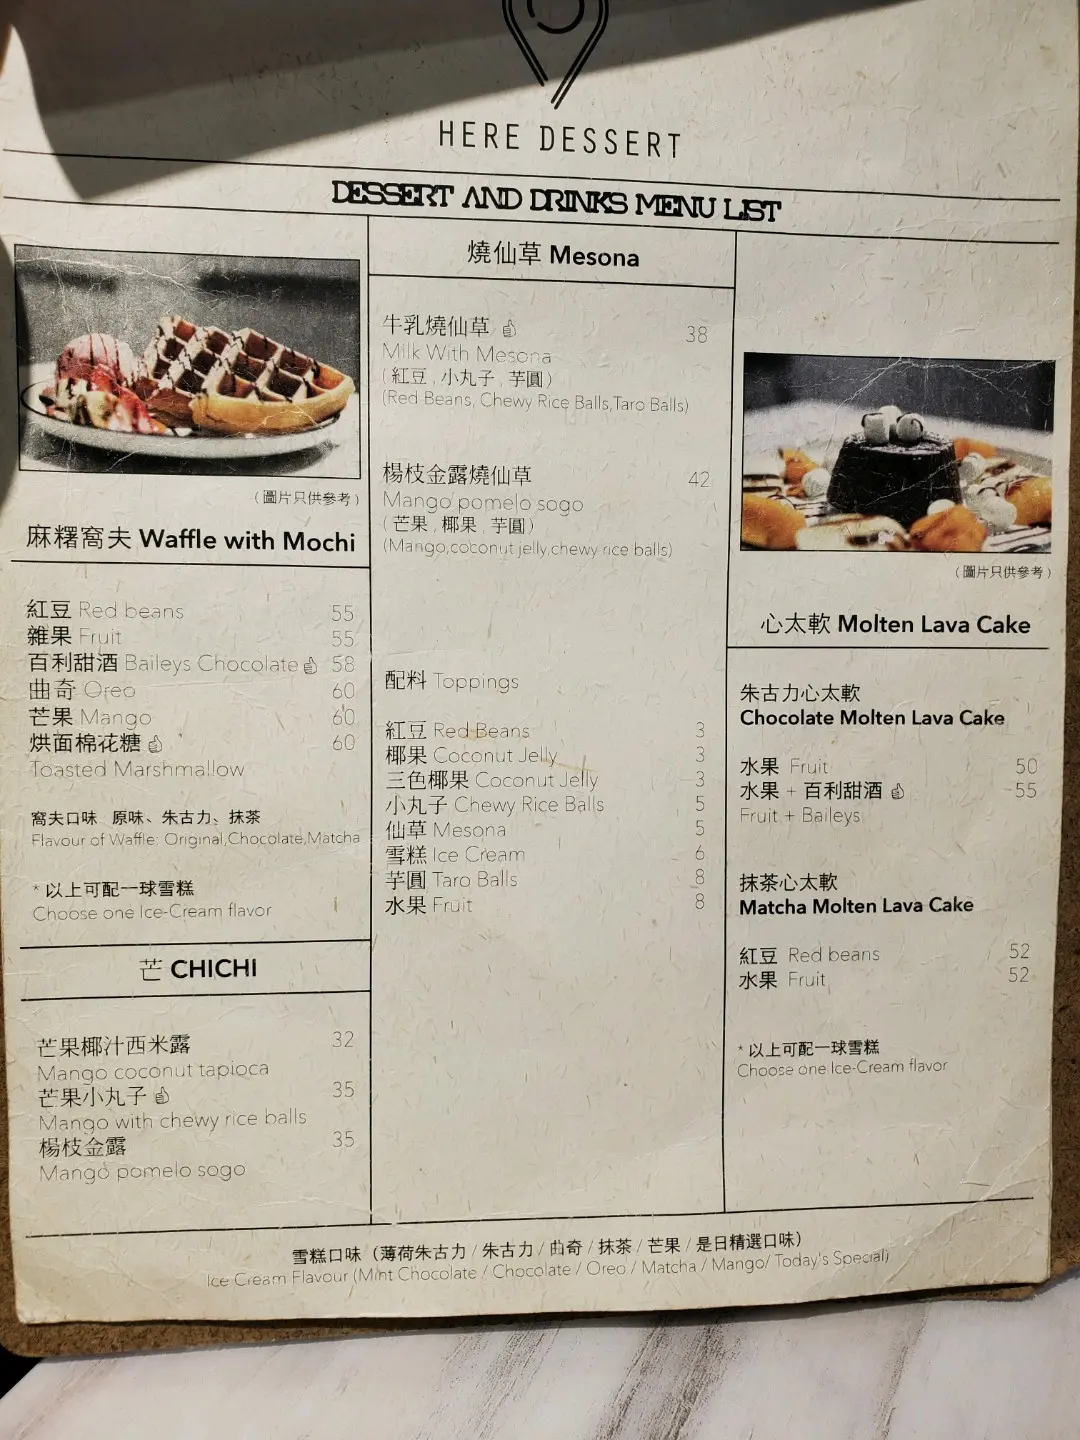 HERE DESSERT
DESSERT AND DRINKS MENU LIST
(圖片只供參考)
麻糬窩夫 Waffle with Mochi
紅豆 Red beans 55
雜果 Fruit 55
百利甜酒 Baileys Chocolate 58
曲奇 Oreo 60
芒果 Mango 60
烘面棉花糖 60
Toasted Marshmallow
窩夫口味 原味、朱古力、抹茶
Flavour of Waffle: Original,Chocolate,Matcha
* 以上可配一球雪糕
Choose one Ice-Cream flavor
芒 CHICHI
芒果椰汁西米露 32
Mango coconut tapioca
芒果小丸子 35
Mango with chewy rice balls
楊枝金露 35
Mango pomelo sogo
燒仙草 Mesona
牛乳燒仙草 38
Milk With Mesona
(紅豆, 小丸子, 芋圓)
(Red Beans, Chewy Rice Balls,Taro Balls)
楊枝金露燒仙草 42
Mango pomelo sogo
(芒果, 椰果, 芋圓)
(Mango,coconut jelly,chewy rice balls)
配料 Toppings
紅豆 Red Beans 3
椰果 Coconut Jelly 3
三色椰果 Coconut Jelly 3
小丸子 Chewy Rice Balls 5
仙草 Mesona 5
雪糕 Ice Cream 6
芋圓 Taro Balls 8
水果 Fruit 8
(圖片只供參考)
心太軟 Molten Lava Cake
朱古力心太軟
Chocolate Molten Lava Cake
水果 Fruit 50
水果 + 百利甜酒 55
Fruit + Baileys
抹茶心太軟
Matcha Molten Lava Cake
紅豆 Red beans 52
水果 Fruit 52
* 以上可配一球雪糕
Choose one Ice-Cream flavor
雪糕口味 (薄荷朱古力 / 朱古力 / 曲奇 / 抹茶 / 芒果 / 是日精選口味)
Ice Cream Flavour (Mint Chocolate / Chocolate / Oreo / Matcha / Mango/ Today's Special)